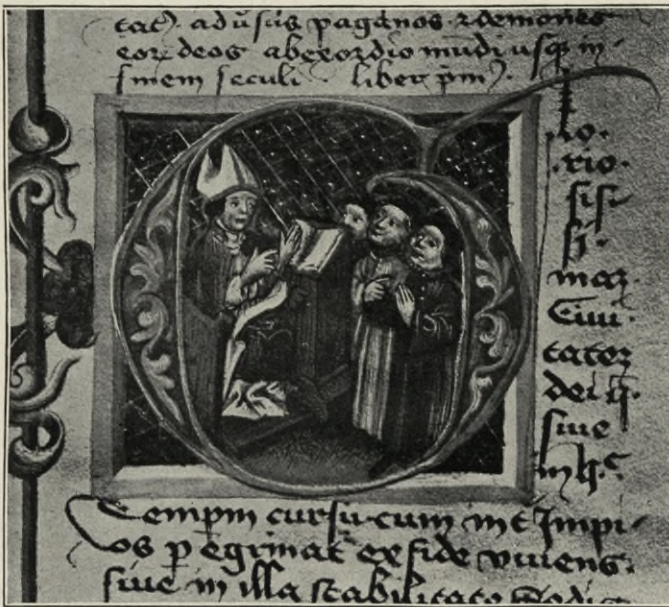 tat). aduſus paganos ⁊ demones
eoꝝ deos abexordio mundi uſqꝫ in
finem seculi liber pm⁊.
lo
rio
ſiſ
ſi
maz
Ciui
tatez
dei
ſiue
in h̄c
Tempm curſu cum int̄ Impi
os p̄ egrinat̄ ex fide viuens.
ſiue in illa ſtabilitate